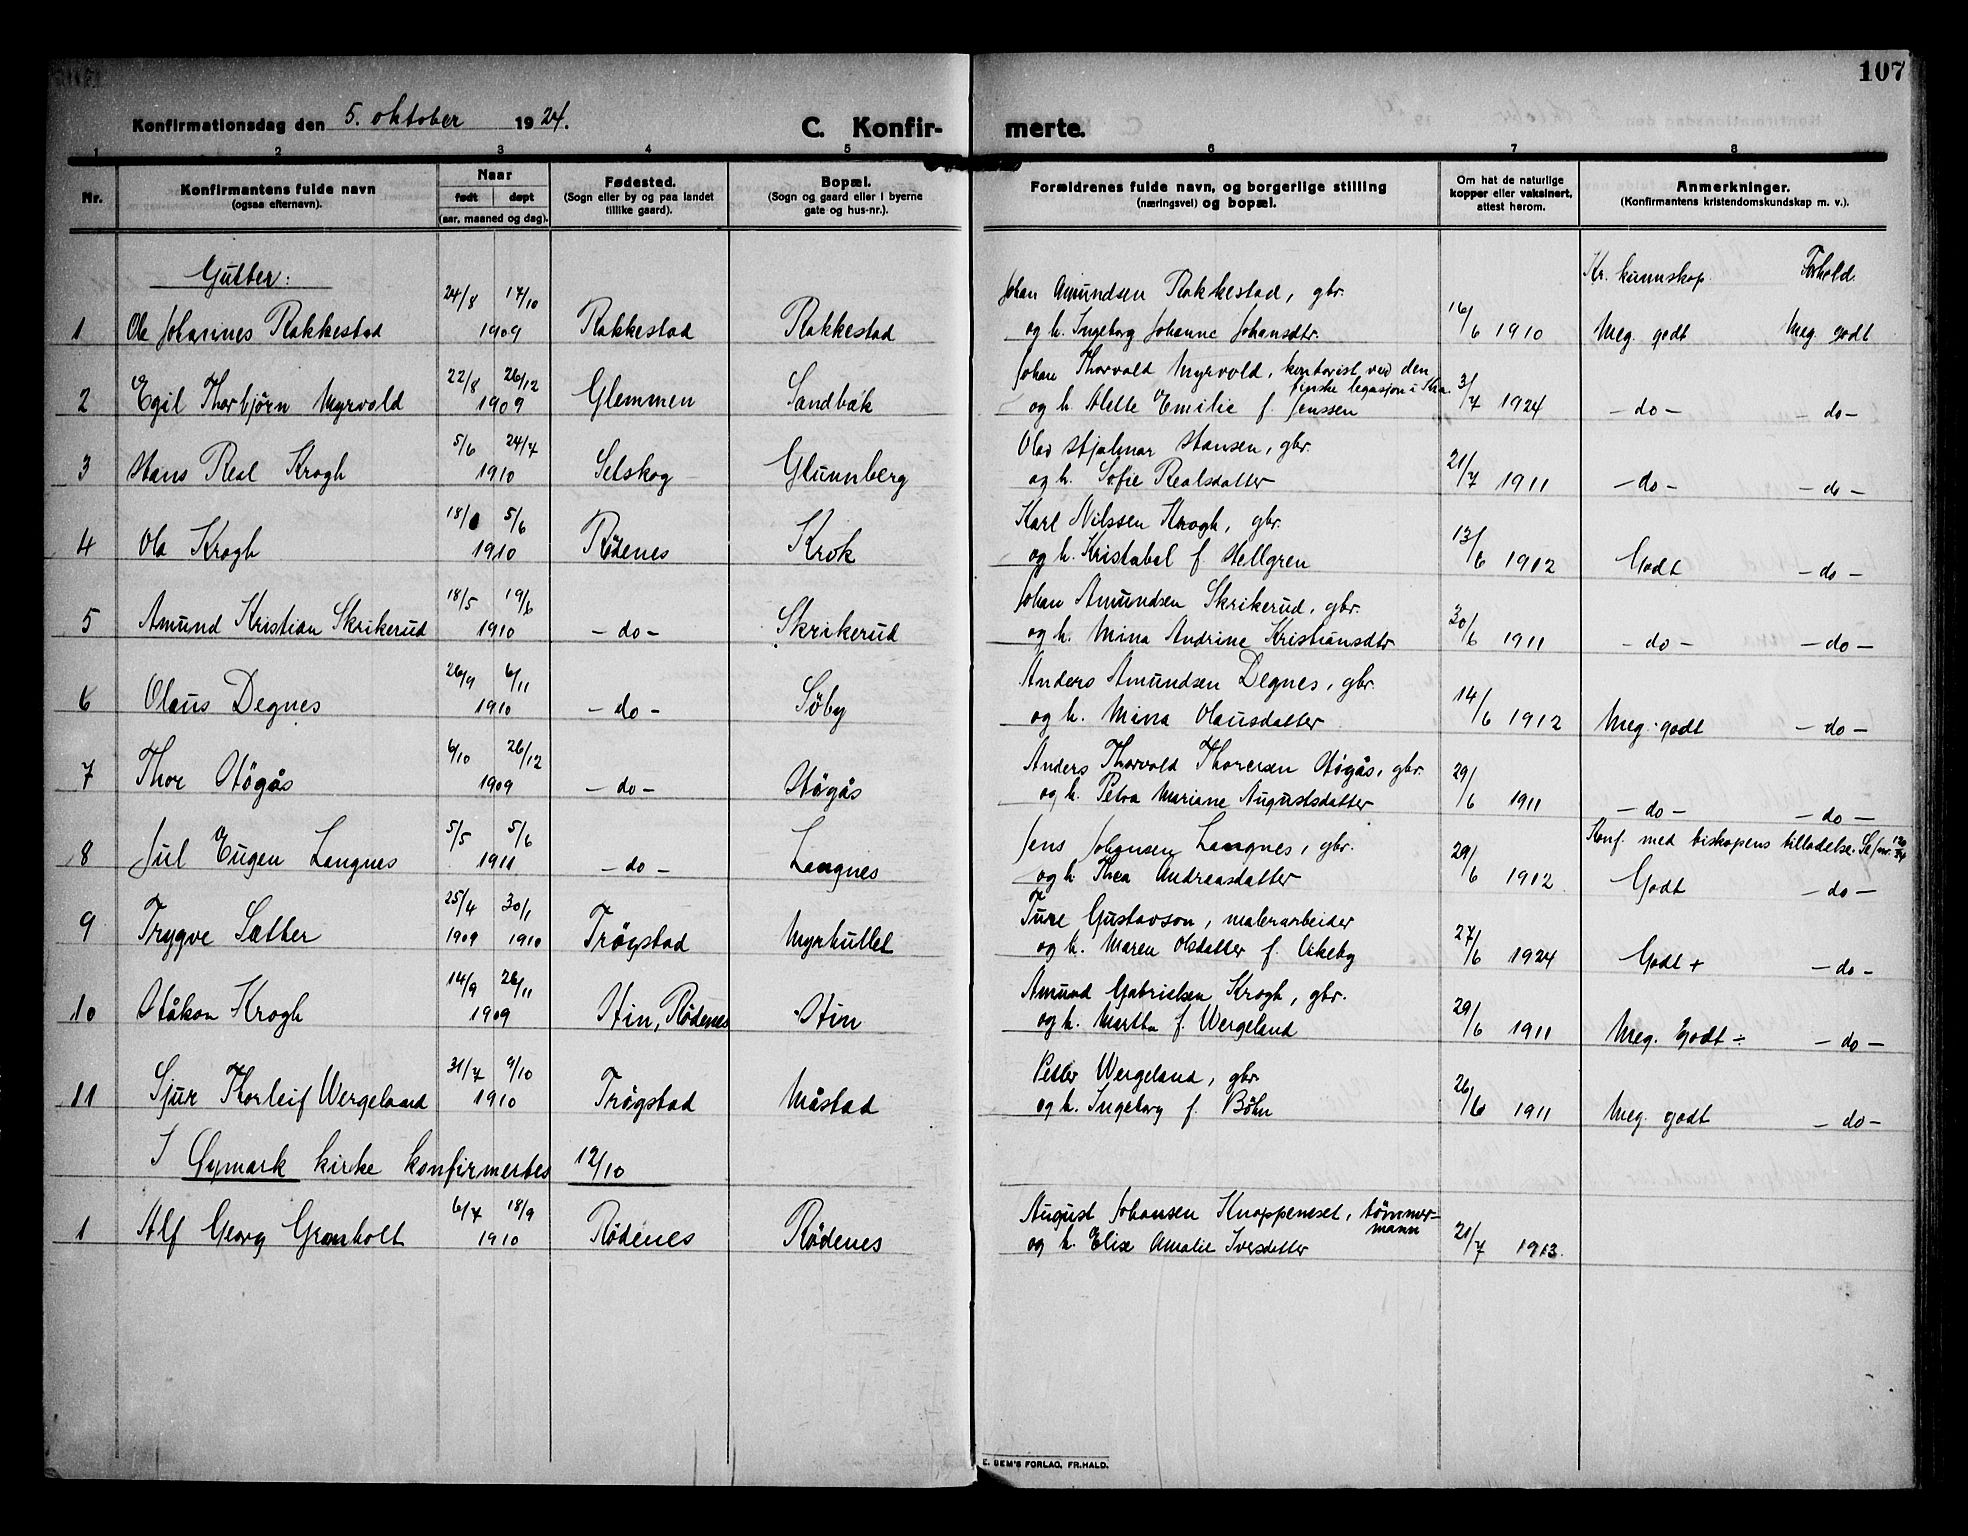 107
Konfirmationsdag den 5. oktober 1924.
C. Konfirmerte.
1 2 3 4 5 6 7 8
Nr. Konfirmantens fulde navn (ogsaa efternavn). Naar født døpt (aar, maaned og dag). Fødested. (Sogn eller by og paa landet tillike gaard). Bopæl. (Sogn og gaard eller i byerne gate og hus-nr.). Forældrenes fulde navn, og borgerlige stilling (næringsvei) og bopæl. Om hat de naturlige kopper eller vaksinert, attest herom. Anmerkninger. (Konfirmantens kristendomskundskap m. v.).
Gutter: Kr. kunnskap. Forhold.
24/8 17/10 Johan Amundsen Rakkestad, gbr.
1 Ole Johannes Rakkestad 1909 Rakkestad Rakkestad og h. Ingeborg Johanne Johansdtr. 16/6 1910 Meg. godt Meg. godt
22/8 26/12 Johan Thorvald Myrvold, kontorist ved den finske legasjon i Kra.
2 Egil Thorbjørn Myrvold 1909 Glemmen Sandbæk og h. Alette Emilie f. Jenssen 3/7 1924 - do - - do -
5/6 24/7 Olav Hjalmar Hansen, gbr.
3 Hans Real Krogh 1910 Setskog Glunnberg og h. Sofie Realsdatter 21/7 1911 - do - - do -
18/ 5/6 Karl Nilssen Krogh, gbr.
4 Ola Krogh 1910 Rødenes Krok og h. Kristabel f. Hellgren 13/6 1912 Godt - do -
18/5 19/6 Johan Amundsen Skrikerud, gbr.
5 Amund Kristian Skrikerud 1910 - do - Skrikerud og h. Mina Andrine Kristiansdtr 30/6 1911 - do - - do -
26/9 6/11 Anders Amundsen Degnes, gbr.
6 Olaus Degnes 1910 - do - Søby og h. Mina Olausdatter 14/6 1912 Meg. godt - do -
6/10 26/12 Anders Thorvald Thoresen Høgås, gbr.
7 Thor Høgås 1909 - do - Høgås og h. Petra Mariane Augustsdatter 29/6 1911 - do - - do -
5/5 5/6 Jens Johansen Langnes, gbr. Konf. med biskopens tilladelse.
8 Jul Eugen Langnes 1911 - do - Langnes og h Thea Andreasdatter 29/6 1912 Godt - do -
25/4 30/1 Ture Gustavson, malerarbeider
9 Trygve Sætter 1909 1910 Trøgstad Myrhullet og h. Maren Olsdatter f. Vikeby 27/6 1924 Godt + - do -
14/9 26/11 Amund Gabrielsen Krogh, gbr.
10 Håkon Krogh 1909 Hin, Rødenes Hin og h. Martha f. Wergeland 29/6 1911 Meg. godt ÷ - do -
31/7 9/10 Petter Wergeland, gbr.
11 Sjur Thorleif Wergeland 1910 Trøgstad Måstad og h. Ingeborg f. Bøhn 26/6 1911 Meg. godt - do -
I Øymark kirke konfirmertes 12/10
6/7 18/9 August Johansen Knappeneset, tømmermann
1 Alf Georg Grønholt 1910 Rødenes Rødenes og h. Elise Amalie Iversdatter 21/7 1913.
E. SEM'S FORLAG, FR.HALD.